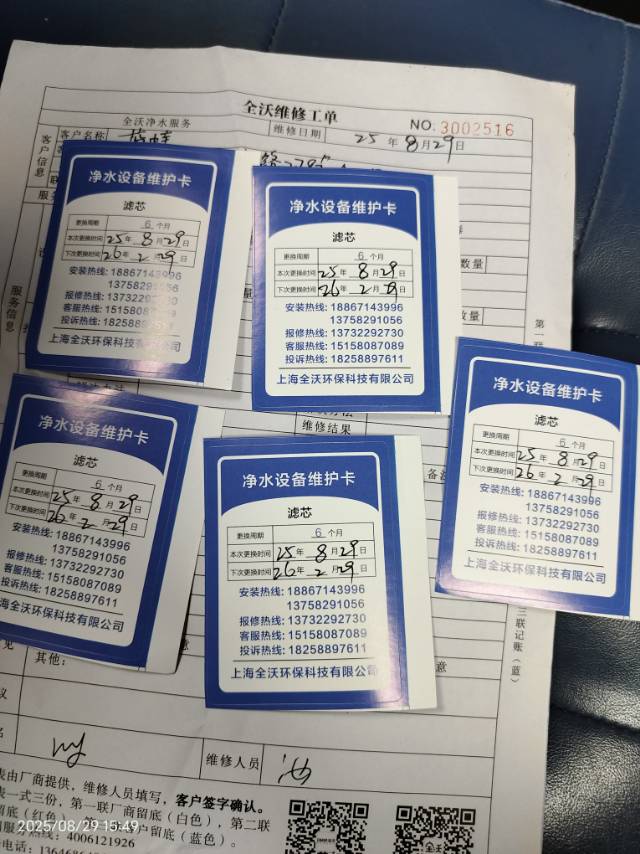 全沃维修工单
NO. 3002516
全沃净水服务
维修日期 25年8月29日
客户信息
客户名称
服务信息
净水设备维护卡
滤芯
更换周期 6个月
本次更换时间 25年8月29日
下次更换时间 26年2月29日
安装热线: 18867143996
13758291056
报修热线: 13732292730
客服热线: 1515808
投诉热线: 18258897
上海全沃环保科技有限公司
净水设备维护卡
滤芯
更换周期 6个月
本次更换时间 25年8月29日
下次更换时间 26年2月29日
安装热线: 18867143996
13758291056
报修热线: 13732292730
客服热线: 15158087089
投诉热线: 18258897611
上海全沃环保科技有限公司
数量
数量
第一联
净水设备维护卡
滤芯
更换周期 6个月
本次更换时间 25年8月29日
下次更换时间 26年2月29日
安装热线: 18867143996
13758291056
报修热线: 13732292730
客服热线: 15158087089
投诉热线: 18258897611
上海全沃环保科技有限公司
维修结果
备注
净水设备维护卡
滤芯
更换周期 6个月
本次更换时间 25年8月29日
下次更换时间 26年2月29日
安装热线: 18867143996
13758291056
报修热线: 13732292730
客服热线: 15158087089
投诉热线: 18258897611
上海全沃环保科技有限公司
净水设备维护卡
滤芯
更换周期 6个月
本次更换时间 25年8月29日
下次更换时间 26年2月29日
安装热线: 18867143996
13758291056
报修热线: 13732292730
客服热线: 15158087089
投诉热线: 18258897611
上海全沃环保科技有限公司
三联记账(蓝)
见
其他:
意
议
名
维修人员
表由厂商提供，维修人员填写，客户签字确认。
表一式三份，第一联厂商留底(白色)，第二联
留底(红色)
户留底(蓝色)。
服务热线: 4006121926
电话: 136468
2025/08/29 15:49